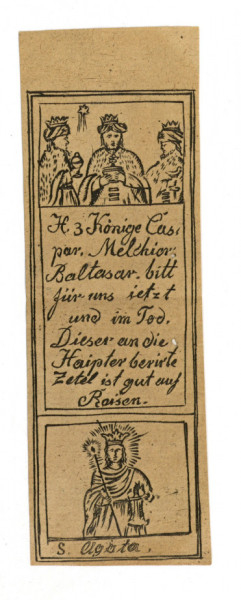 H. 3 Könige Cas,
par, Melchior,
Baltasar. bitt
für uns ietzt
und im Tod.
Dieser an die
Haipter berirte
Zetel ist gut auf
Raisen.
S. Agata.